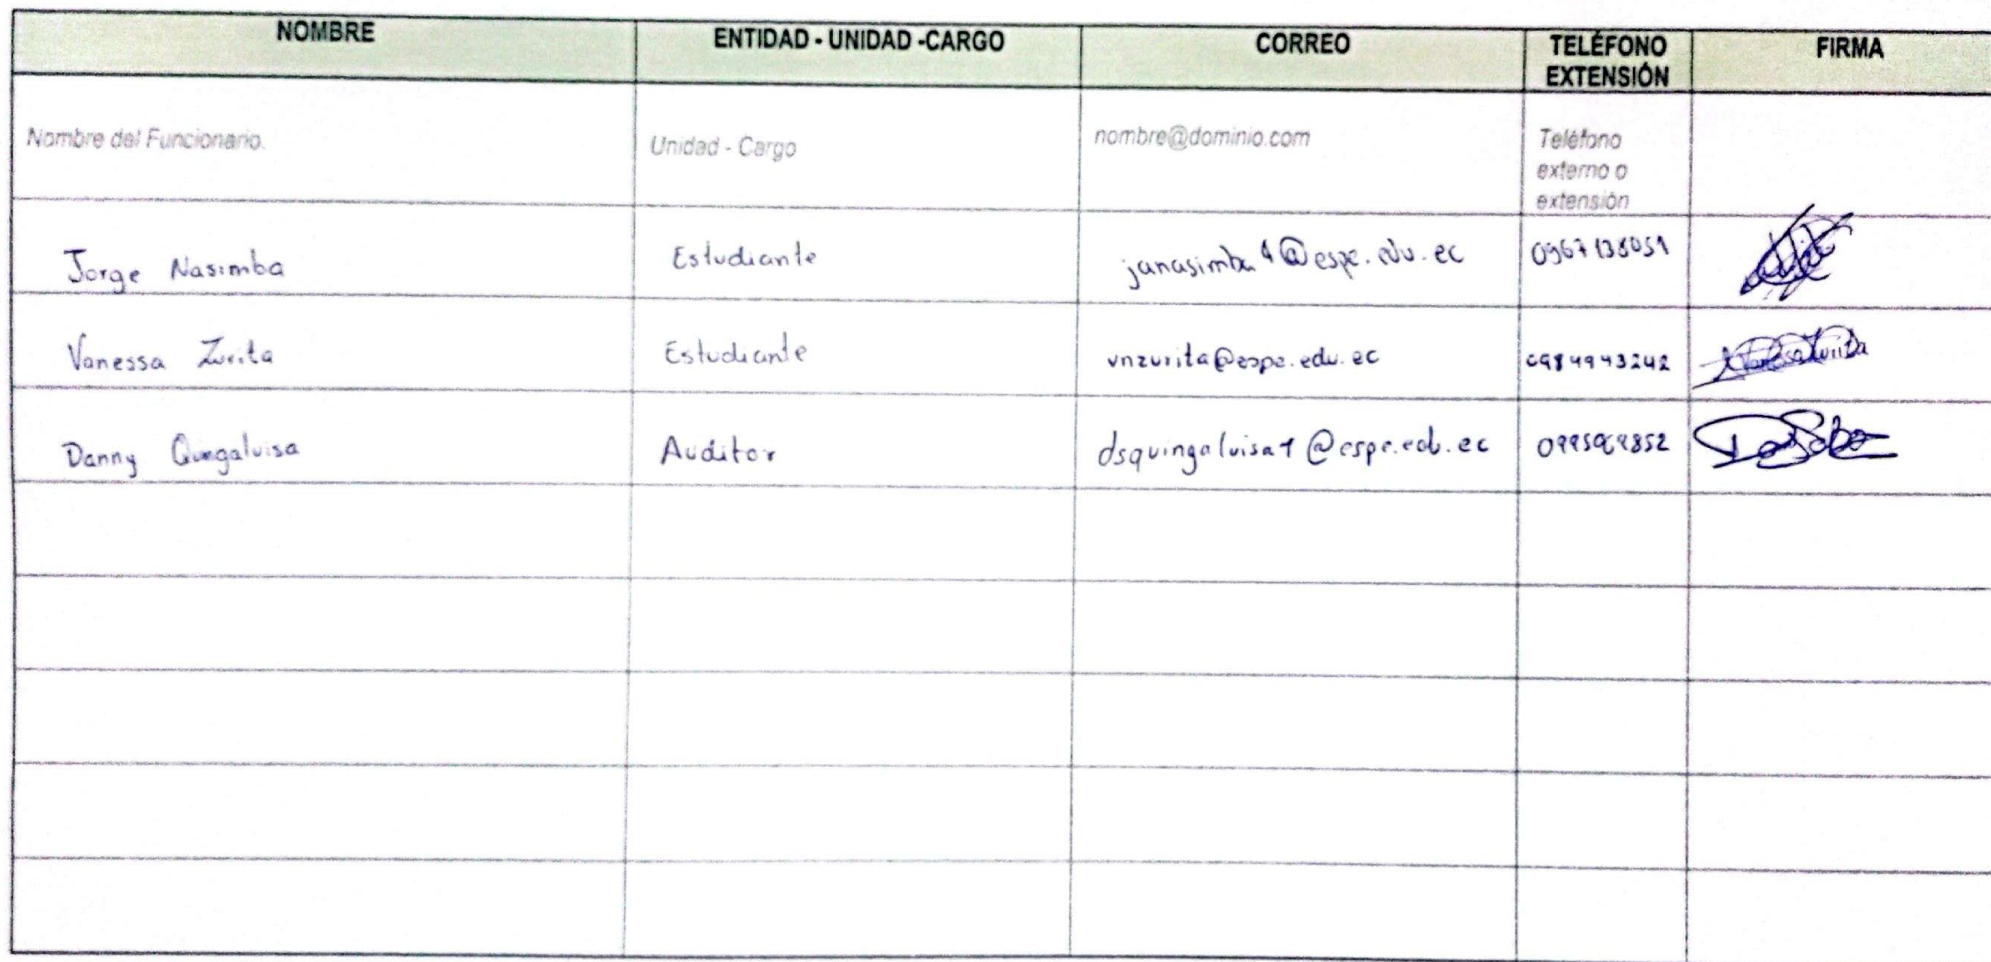 NOMBRE ENTIDAD - UNIDAD -CARGO CORREO TELÉFONO EXTENSIÓN FIRMA
Nombre del Funcionario. Unidad - Cargo nombre@dominio.com Teléfono
externo o
extensión
Jorge Nasimba Estudiante janasimba1@espe.edu.ec 0967138051
Vanessa Zurita Estudiante vnzurita@espe.edu.ec 0984943242 Vanessa Zurita
Danny Quingaluisa Auditor dsquingaluisa1@espe.edu.ec